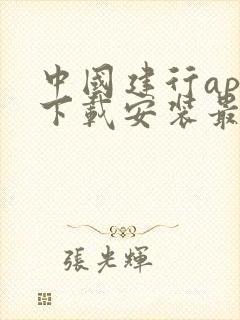 中國建行ap
下載安裝最
張光輝